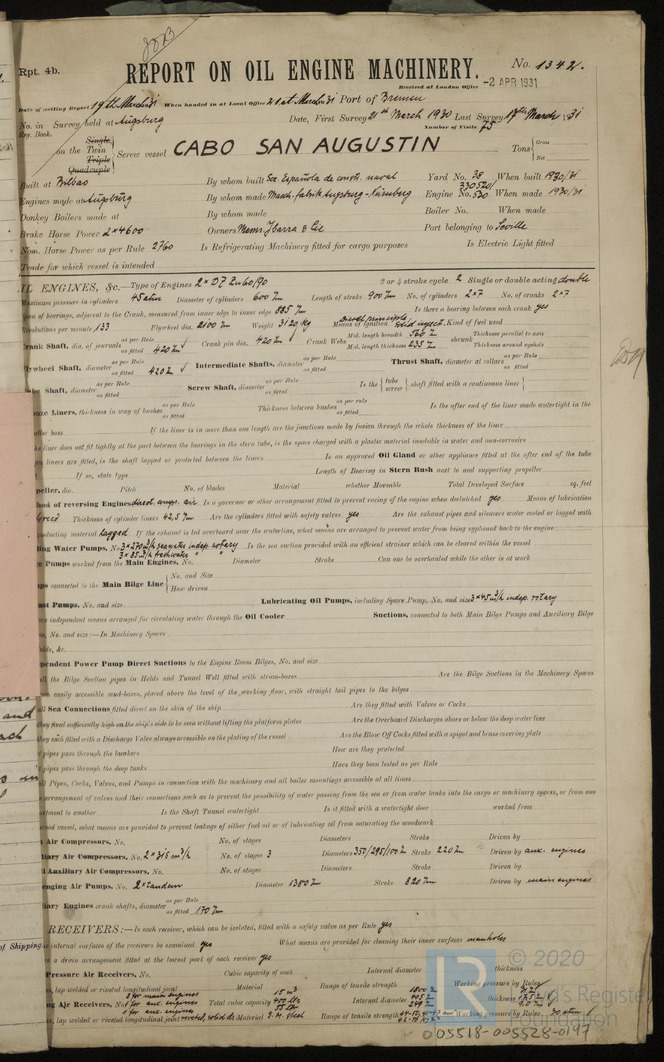 Rpt. 4b.
REPORT ON OIL ENGINE MACHINERY.
No. 1342.
Received at London Office -2 APR 1931
Date of writing Report 19th March 31 When handed in at Local Office 21st March 31 Port of Bremen
No. in Reg. Book. Survey held at Augsburg Date, First Survey 21st March 1930 Last Survey 17th March 1931
Number of Visits 75
on the Single Twin Triple Quadruple Screw vessel CABO SAN AUGUSTIN Tons Gross Net
Built at Bilbao By whom built Soc. Española de constr. naval Yard No. 28 When built 1930/31
Engines made at Augsburg By whom made Masch. fabrik Augsburg-Nürnberg Engine No. When made 1930/31
Donkey Boilers made at By whom made Boiler No. When made
Brake Horse Power 2×4600 Owners Messrs Ybarra & Cie Port belonging to Seville
Nom. Horse Power as per Rule 2760 Is Refrigerating Machinery fitted for cargo purposes Is Electric Light fitted
Trade for which vessel is intended
IL ENGINES, &c.—Type of Engines 2 × DZ Zu 60/90 2 or 4 stroke cycle 2 Single or double acting double
Maximum pressure in cylinders 45 atm Diameter of cylinders 600 Length of stroke 900 No. of cylinders 2×7 No. of cranks 2×7
of bearings, adjacent to the Crank, measured from inner edge to inner edge 885 Is there a bearing between each crank yes
Revolutions per minute 133 Flywheel dia. 2100 Weight 3120 kg Means of ignition Diesel principle solid inject. Kind of fuel used
Crank Shaft, dia. of journals as per Rule as fitted 420 Crank pin dia. 420 Crank Webs Mid. length breadth 560 Mid. length thickness 235 shrunk Thickness parallel to axis Thickness around eyehole
Flywheel Shaft, diameter as per Rule as fitted 420 Intermediate Shafts, diameter as per Rule as fitted Thrust Shaft, diameter at collars as per Rule as fitted
Tube Shaft, diameter as per Rule as fitted Screw Shaft, diameter as per Rule as fitted Is the tube screw shaft fitted with a continuous liner
Liners, thickness in way of bushes as per Rule as fitted Thickness between bushes as per rule as fitted Is the after end of the liner made watertight in the
boss If the liner is in more than one length are the junctions made by fusion through the whole thickness of the liner
he liner does not fit tightly at the part between the bearings in the stern tube, is the space charged with a plastic material insoluble in water and non-corrosive
liners are fitted, is the shaft lapped or protected between the liners Is an approved Oil Gland or other appliance fitted at the after end of the tube
If so, state type Length of Bearing in Stern Bush next to and supporting propeller
peller, dia. Pitch No. of blades Material whether Moveable Total Developed Surface sq. feet
hod of reversing Engines direct. compr. air Is a governor or other arrangement fitted to prevent racing of the engine when declutched yes Means of lubrication
forced Thickness of cylinder liners 42,5 Are the cylinders fitted with safety valves yes Are the exhaust pipes and silencers water cooled or lagged with
conducting material lagged If the exhaust is led overboard near the waterline, what means are arranged to prevent water from being syphoned back to the engine
ling Water Pumps, No. 3×270 m³/h seawater indep. rotary Is the sea suction provided with an efficient strainer which can be cleared within the vessel
3×85 m³/h freshwater " "
Pumps worked from the Main Engines, No. Diameter Stroke Can one be overhauled while the other is at work
mps connected to the Main Bilge Line No. and Size How driven
Pumps, No. and size Lubricating Oil Pumps, including Spare Pump, No. and size 3×45 m³/h indep. rotary
independent means arranged for circulating water through the Oil Cooler Suctions, connected to both Main Bilge Pumps and Auxiliary Bilge
s, No. and size:—In Machinery Spaces
olds, &c.
pendent Power Pump Direct Suctions to the Engine Room Bilges, No. and size
ll the Bilge Suction pipes in Holds and Tunnel Well fitted with strum-boxes Are the Bilge Suctions in the Machinery Spaces
easily accessible mud-boxes, placed above the level of the working floor, with straight tail pipes to the bilges
ll Sea Connections fitted direct on the skin of the ship Are they fitted with Valves or Cocks
they fixed sufficiently high on the ship's side to be seen without lifting the platform plates Are the Overboard Discharges above or below the deep water line
they each fitted with a Discharge Valve always accessible on the plating of the vessel Are the Blow Off Cocks fitted with a spigot and brass covering plate
pipes pass through the bunkers How are they protected
pipes pass through the deep tanks Have they been tested as per Rule
ll Pipes, Cocks, Valves, and Pumps in connection with the machinery and all boiler mountings accessible at all times
arrangement of valves and their connections such as to prevent the possibility of water passing from the sea or from water tanks into the cargo or machinery spaces, or from one
tment to another Is the Shaft Tunnel watertight Is it fitted with a watertight door worked from
vessel, what means are provided to prevent leakage of either fuel oil or of lubricating oil from saturating the woodwork
Air Compressors, No. No. of stages Diameters Stroke Driven by
liary Air Compressors, No. 2×315 m³/h No. of stages 3 Diameters 350/295/100 Stroke 220 Driven by aux. engines
Auxiliary Air Compressors, No. No. of stages Diameters Stroke Driven by
enging Air Pumps, No. 2×tandem Diameter 1380 Stroke 820 Driven by main engines
iary Engines crank shafts, diameter as per Rule as fitted 170
RECEIVERS:—Is each receiver, which can be isolated, fitted with a safety valve as per Rule yes
of Shipping.
internal surfaces of the receivers be examined yes What means are provided for cleaning their inner surfaces manholes
a drain arrangement fitted at the lowest part of each receiver yes
Pressure Air Receivers, No. Cubic capacity of each Internal diameter thickness
lap welded or riveted longitudinal joint Material Range of tensile strength Working pressure by Rules
ng Air Receivers, No. Total cubic capacity Internal diameter thickness
lap welded or riveted longitudinal joint riveted, solid dr. Material S.M. steel Range of tensile strength Working pressure by Rules 30 atm
LR © 2020
Lloyd's Register Foundation
005518-005528-0197